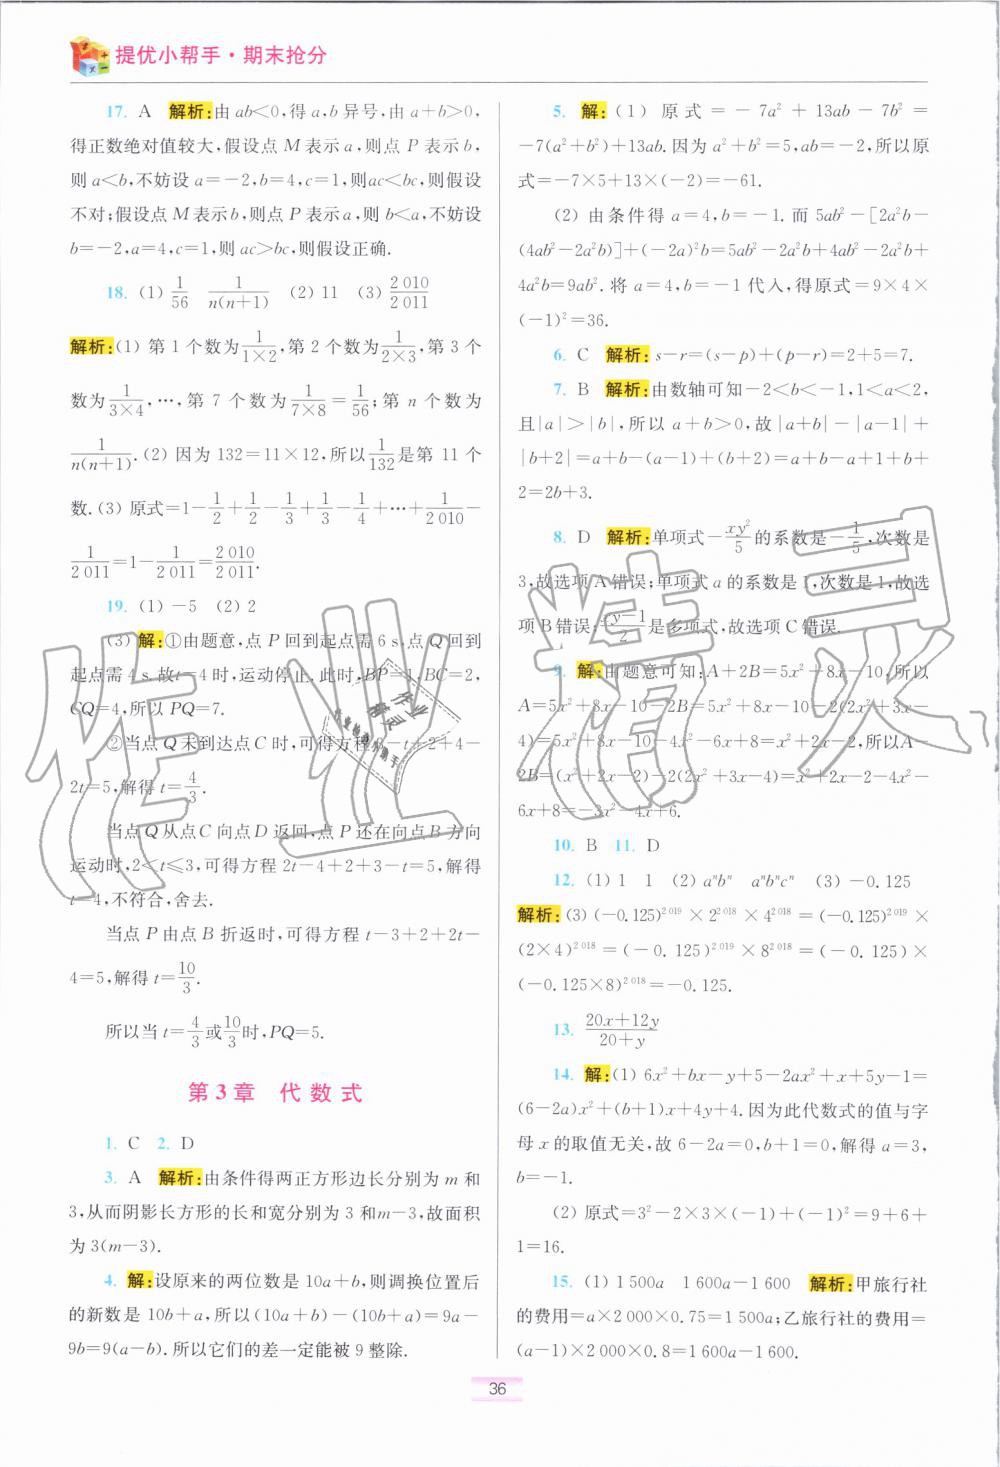 提优小帮手·期末抢分
17. A 解析:由 ab<0,得 a,b 异号,由 a+b>0,
得正数绝对值较大,假设点 M 表示 a,则点 P 表示 b,
则 a<b,不妨设 a=-2,b=4,c=1,则ac<bc,则假设
不对;假设点 M 表示b,则点 P 表示 a,则 b<a,不妨设
b=-2,a=4,c=1,则 ac>bc,则假设正确.
18. (1) 1/56 1/n(n+1) (2) 11 (3) 2 010/2 011
解析:(1) 第 1 个数为1/1×2,第 2 个数为1/2×3,第 3 个
数为1/3×4,…,第 7 个数为1/7×8=1/56;第 n 个数为
1/n(n+1).(2) 因为 132=11×12,所以1/132是第 11 个
数.(3) 原式=1-1/2+1/2-1/3+1/3-1/4+…+1/2 010-
1/2 011=1-1/2 011=2 010/2 011.
19. (1) -5 (2) 2
(3) 解:①由题意,点 P 回到起点需 6 s,点 Q 回到
起点需 4 s.故t=4 时,运动停止.此时,BP=1,BC=2,
CQ=4,所以 PQ=7.
②当点 Q 未到达点 C 时,可得方程 8-t+2+4-
2t=5,解得 t=4/3.
当点 Q 从点 C 向点 D 返回,点 P 还在向点 B 方向
运动时,2<t≤3,可得方程 2t-4+2+3-t=5,解得
t=4,不符合,舍去.
当点 P 由点 B 折返时,可得方程 t-3+2+2t-
4=5,解得 t=10/3.
所以当 t=4/3或10/3时,PQ=5.
第 3 章 代数式
1. C 2. D
3. A 解析:由条件得两正方形边长分别为 m 和
3,从而阴影长方形的长和宽分别为 3 和m-3,故面积
为 3(m-3).
4. 解:设原来的两位数是 10a+b,则调换位置后
的新数是 10b+a,所以(10a+b)-(10b+a)=9a-
9b=9(a-b).所以它们的差一定能被 9 整除.
5. 解:(1) 原式=-7a²+13ab-7b²=
-7(a²+b²)+13ab.因为 a²+b²=5,ab=-2,所以原
式=-7×5+13×(-2)=-61.
(2) 由条件得 a=4,b=-1.而 5ab²-[2a²b-
(4ab²-2a²b)]+(-2a)²b=5ab²-2a²b+4ab²-2a²b+
4a²b=9ab².将 a=4,b=-1 代入,得原式=9×4×
(-1)²=36.
6. C 解析:s-r=(s-p)+(p-r)=2+5=7.
7. B 解析:由数轴可知-2<b<-1,1<a<2,
且|a|>|b|,所以 a+b>0,故|a+b|-|a-1|+
|b+2|=a+b-(a-1)+(b+2)=a+b-a+1+b+
2=2b+3.
8. D 解析:单项式-xy²/5的系数是-1/5,次数是
3,故选项 A 错误;单项式 a 的系数是 1,次数是 1,故选
项 B 错误;xy-1/2是多项式,故选项 C 错误.
9. 解:由题意可知:A+2B=5x²+8x-10,所以
A=5x²+8x-10-2B=5x²+8x-10-2(2x²+3x-
4)=5x²+8x-10-4x²-6x+8=x²+2x-2,所以A-
2B=(x²+2x-2)-2(2x²+3x-4)=x²+2x-2-4x²-
6x+8=-3x²-4x+6.
10. B 11. D
12. (1) 1 1 (2) aⁿbⁿ aⁿbⁿcⁿ (3) -0.125
解析:(3) (-0.125)²⁰¹⁹×2²⁰¹⁸×4²⁰¹⁸=(-0.125)²⁰¹⁹×
(2×4)²⁰¹⁸=(-0.125)²⁰¹⁹×8²⁰¹⁸=(-0.125)×
(-0.125×8)²⁰¹⁸=-0.125.
13. 20x+12y/20+y
14. 解:(1) 6x²+bx-y+5-2ax²+x+5y-1=
(6-2a)x²+(b+1)x+4y+4.因为此代数式的值与字
母 x 的取值无关,故 6-2a=0,b+1=0,解得 a=3,
b=-1.
(2) 原式=3²-2×3×(-1)+(-1)²=9+6+
1=16.
15. (1) 1 500a 1 600a-1 600 解析:甲旅行社
的费用=a×2 000×0.75=1 500a;乙旅行社的费用=
(a-1)×2 000×0.8=1 600a-1 600.
36
作业精灵